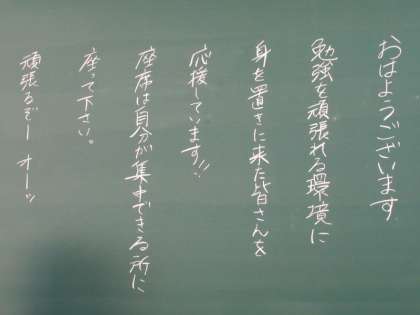 おはようございます
勉強を頑張れる環境に
身を置きに来た皆さんを
応援しています!!
座席は自分が集中できる所に
座って下さい。
頑張るぞー オーッ